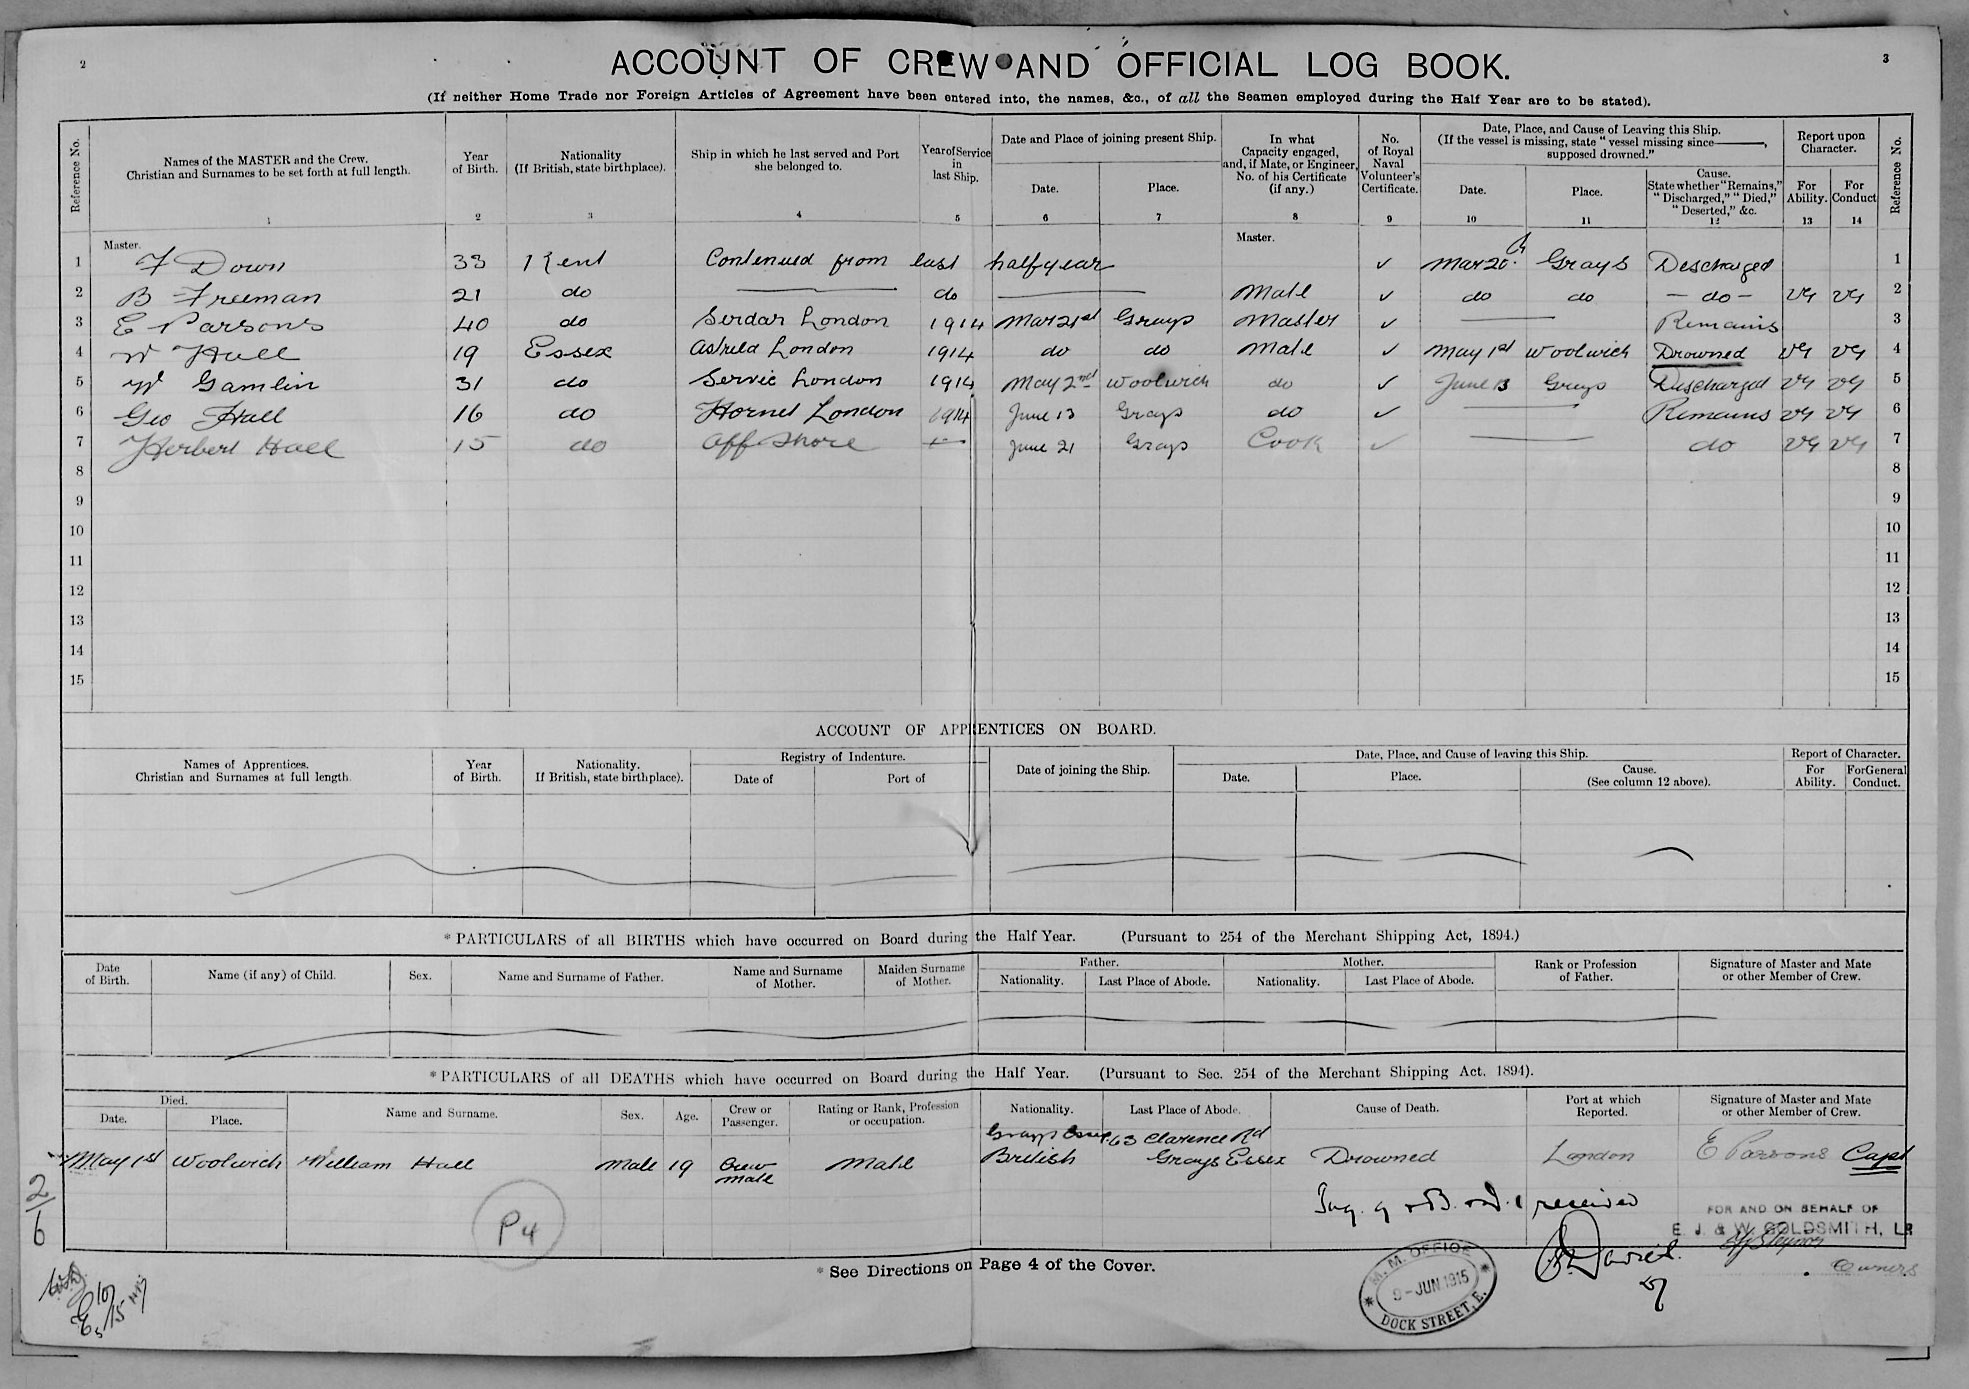 2
3
ACCOUNT OF CREW AND OFFICIAL LOG BOOK.
(If neither Home Trade nor Foreign Articles of Agreement have been entered into, the names, &c., of all the Seamen employed during the Half Year are to be stated).
Reference No. Names of the MASTER and the Crew. Christian and Surnames to be set forth at full length. Year of Birth. Nationality (If British, state birthplace). Ship in which he last served and Port she belonged to. Year of Service in last Ship. Date and Place of joining present Ship. Date. Place. In what Capacity engaged, and, if Mate, or Engineer, No. of his Certificate (if any.) No. of Royal Naval Volunteer's Certificate. Date, Place, and Cause of Leaving this Ship. (If the vessel is missing, state "vessel missing since——, supposed drowned." Date. Place. Cause. State whether "Remains," "Discharged," "Died," "Deserted," &c. Report upon Character. For Ability. For Conduct Reference No.
1 2 3 4 5 6 7 8 9 10 11 12 13 14
Master. Master.
1 F Down 33 Kent Contenued from last half year ✓ Mar 20 Grays Descharged 1
2 B Freeman 21 do do Mate ✓ do do - do - VG VG 2
3 E Parsons 40 do Serdar London 1914 Mar 21st Grays Master ✓ Remains 3
4 W Hall 19 Essex Astrild London 1914 do do Mate ✓ May 1st Woolwich Drowned VG VG 4
5 W Gamlin 31 do Servic London 1914 May 2nd Woolwich do ✓ June 13 Grays Descharged VG VG 5
6 Geo Hall 16 do Hornet London 1914 June 13 Grays do ✓ Remains VG VG 6
7 Herbert Hall 15 do Off Shore June 21 Grays Cook ✓ do VG VG 7
8 8
9 9
10 10
11 11
12 12
13 13
14 14
15 15
ACCOUNT OF APPRENTICES ON BOARD.
Names of Apprentices. Christian and Surnames at full length. Year of Birth. Nationality. If British, state birthplace). Registry of Indenture. Date of Port of Date of joining the Ship. Date, Place, and Cause of leaving this Ship. Date. Place. Cause. (See column 12 above). Report of Character. For Ability. For General Conduct.
*PARTICULARS of all BIRTHS which have occurred on Board during the Half Year. (Pursuant to 254 of the Merchant Shipping Act, 1894.)
Date of Birth. Name (if any) of Child. Sex. Name and Surname of Father. Name and Surname of Mother. Maiden Surname of Mother. Father. Nationality. Last Place of Abode. Mother. Nationality. Last Place of Abode. Rank or Profession of Father. Signature of Master and Mate or other Member of Crew.
*PARTICULARS of all DEATHS which have occurred on Board during the Half Year. (Pursuant to Sec. 254 of the Merchant Shipping Act. 1894).
Died. Date. Place. Name and Surname. Sex. Age. Crew or Passenger. Rating or Rank, Profession or occupation. Nationality. Last Place of Abode. Cause of Death. Port at which Reported. Signature of Master and Mate or other Member of Crew.
Grays Essex 63 Clarence Rd
May 1st Woolwich William Hall Male 19 Crew Mate Mate British Grays Essex Drowned London E Parsons Capt
received
2/6
P4
FOR AND ON BEHALF OF
E. J. & W. GOLDSMITH, LD
Owners
* See Directions on Page 4 of the Cover.
M. M. OFFICE
9-JUN 1915
DOCK STREET, E.